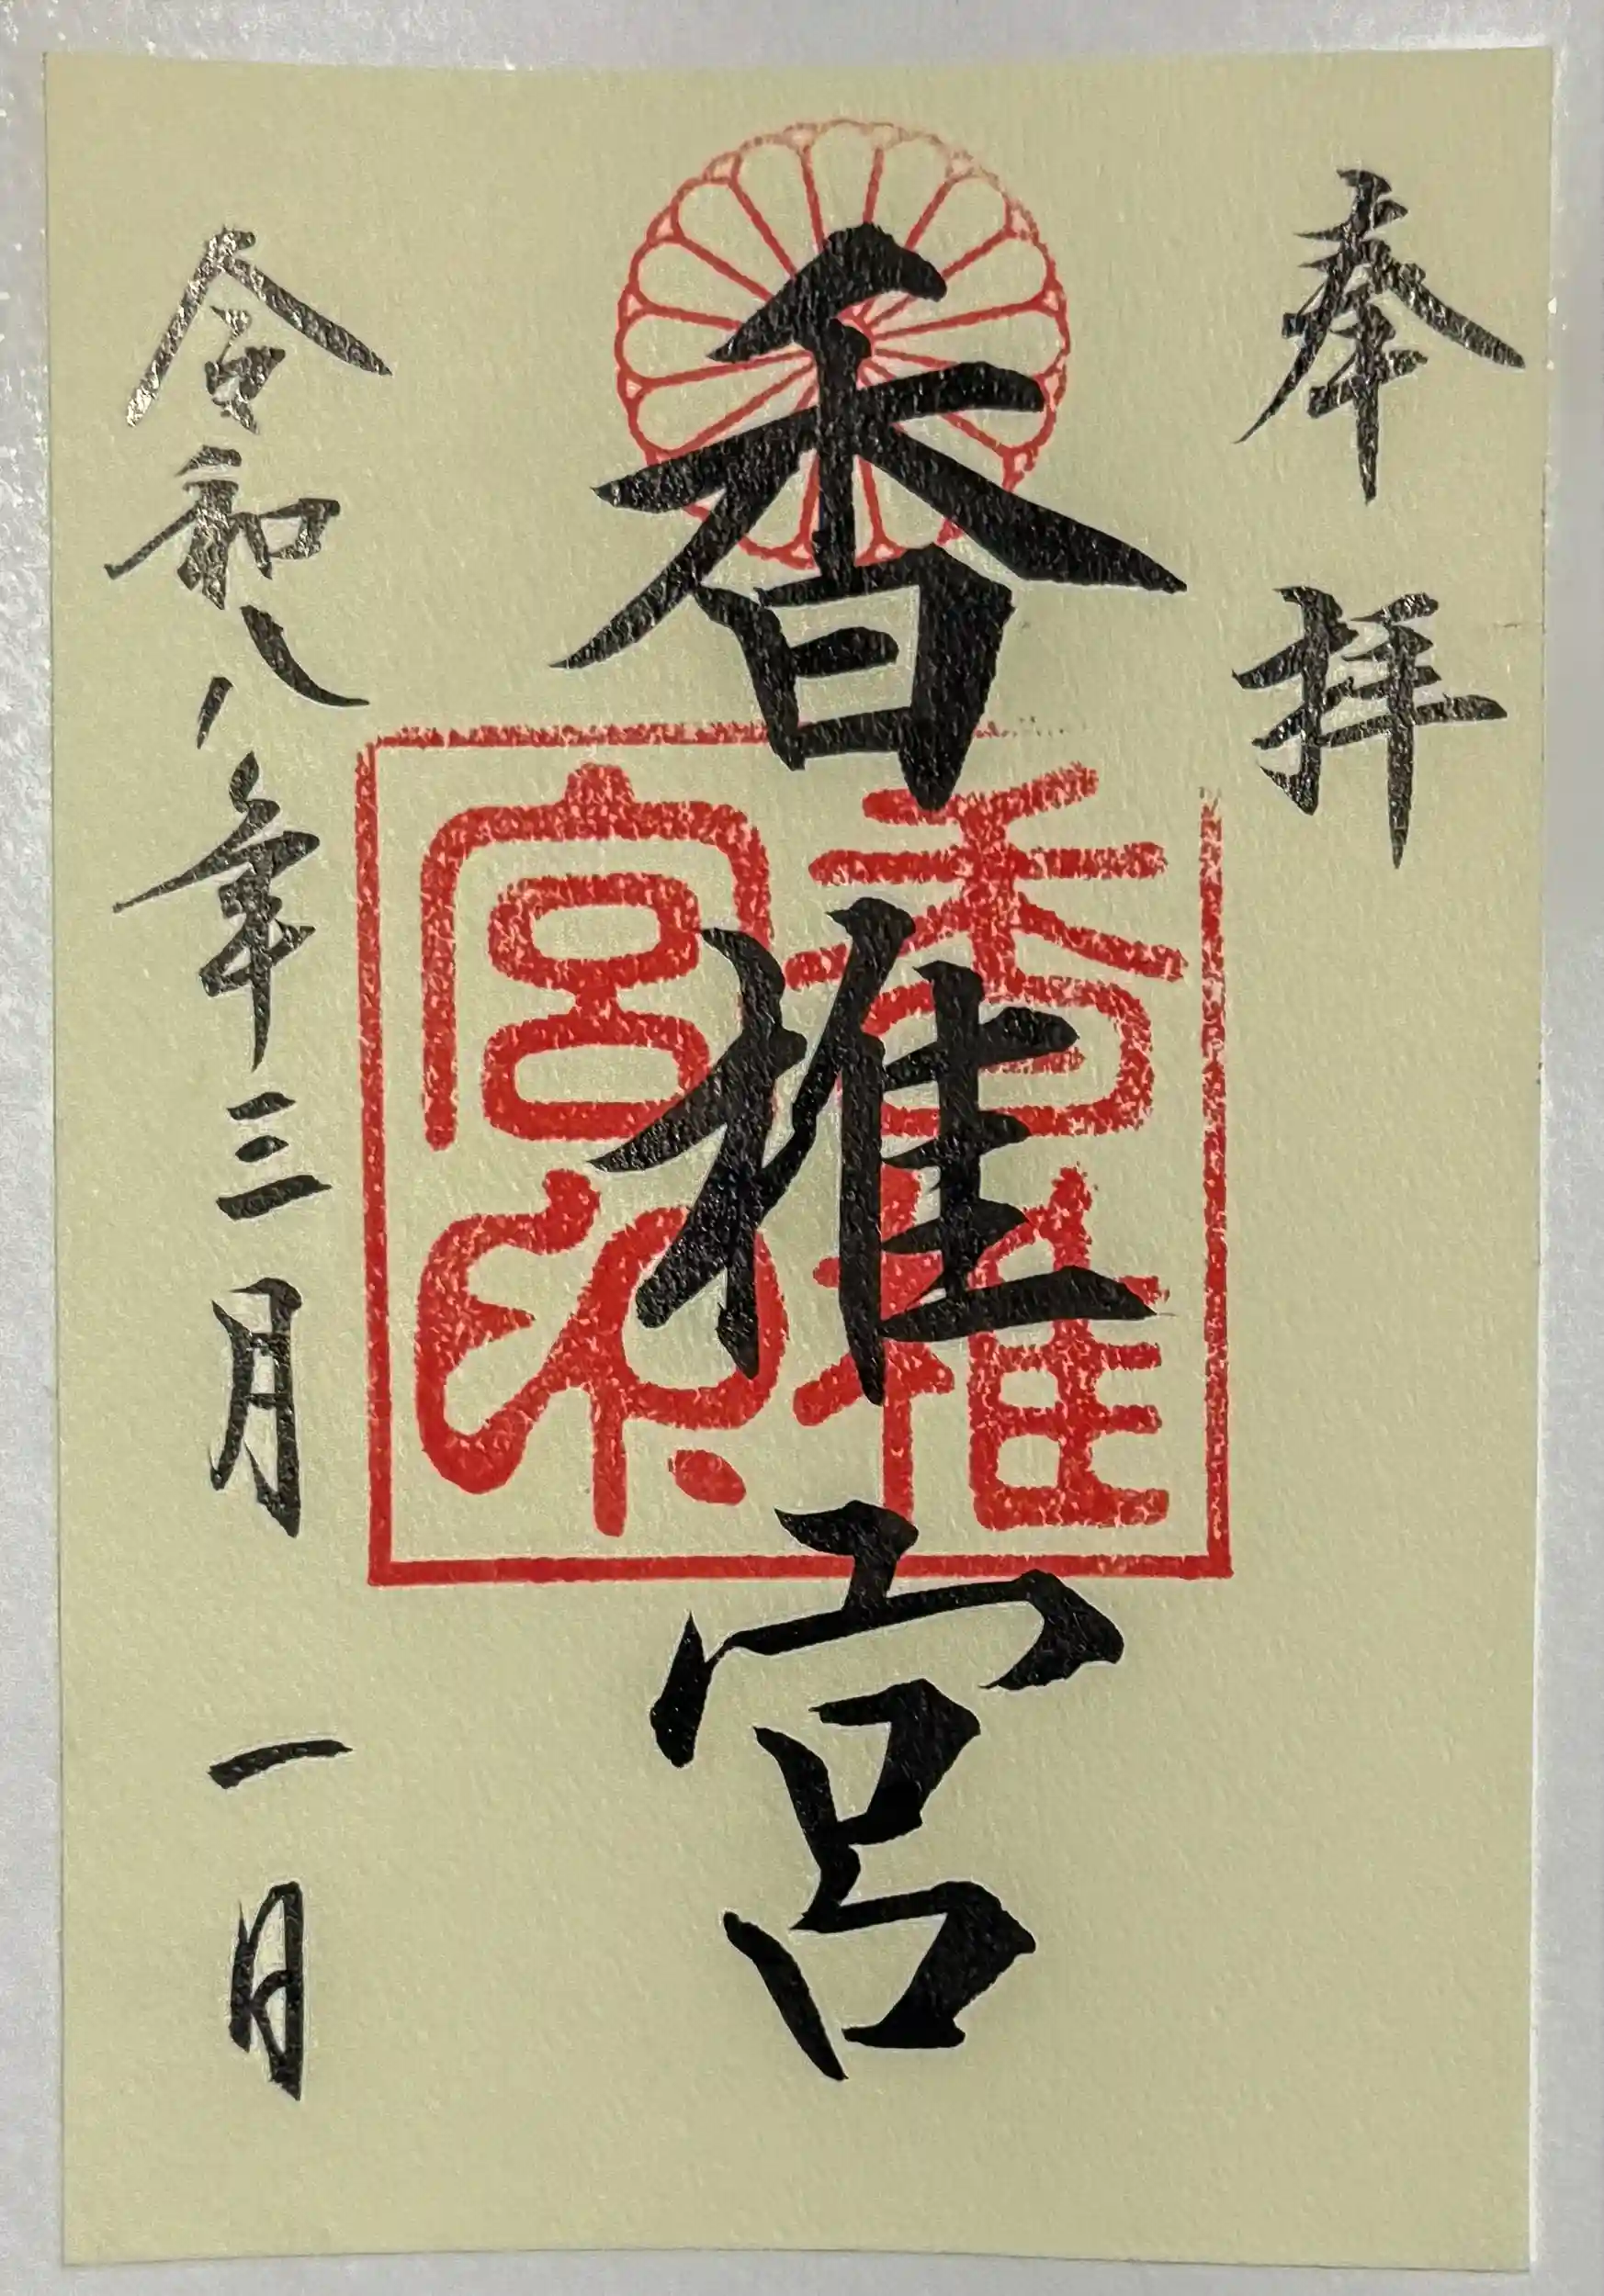 奉拝
香椎宮
香椎
宮印
令和八年三月一日